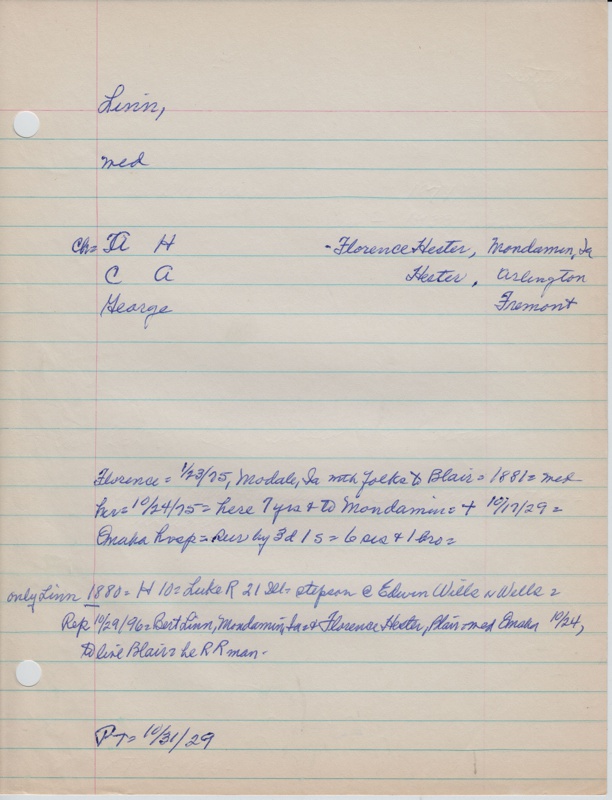 Linn,
med
Ch= D A H -Florence Hester, Mondamin, Ia
C A Hester, Arlington
George Fremont
Florence = 1/23/75, Modale, Ia with folks to Blair = 1881 = med
her = 10/24/95 = here 7 yrs & to Mondamin = + 10/17/29 =
Omaha hosp = sur by 3 d 1 s = 6 sis & 1 bro =
only Linn 1880 = H 10 = Luke R 21 Ill = stepson @ Edwin Wells Wells =
Rep 10/29/96 = Bert Linn, Mondamin, Ia = & Florence Hester, Blair = med Omaha 10/24,
to live Blair = he R R man -
PT = 10/31/29